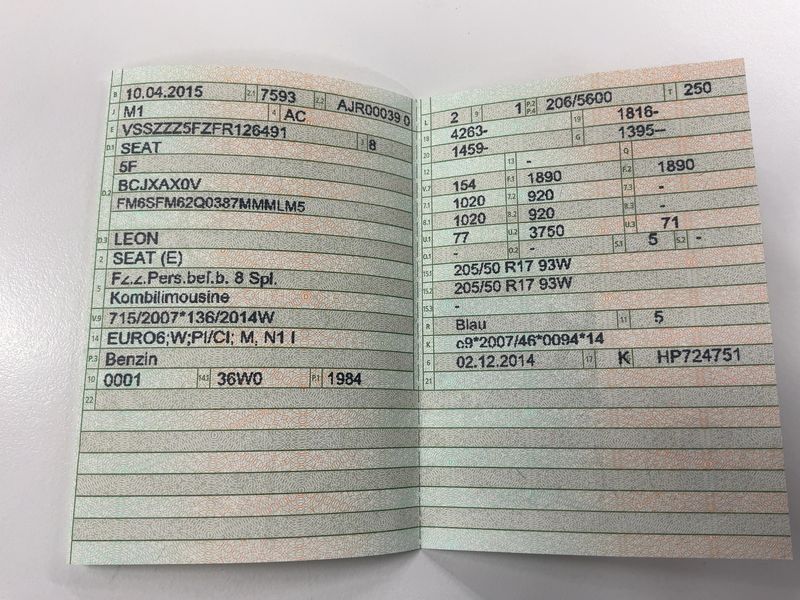 B 10.04.2015 2.1 7593 2.2 AJR00039 0
J M1 4 AC
E VSSZZZ5FZFR126491
D.1 SEAT 3 8
5F
D.2 BCJXAX0V
FM6SFM62Q0387MMMLM5
D.3 LEON
2 SEAT (E)
5 Fz.z.Pers.bef.b. 8 Spl.
Kombilimousine
V.9 715/2007*136/2014W
14 EURO6;W;PI/CI; M, N1 I
P.3 Benzin
10 0001 14.1 36W0 P.1 1984
22
L 2 9 1 P.2 P.4 206/5600 T 250
18 4263- 19 1816-
20 1459- G 1395--
12 - 13 - Q
V.7 154 F.1 1890 F.2 1890
7.1 1020 7.2 920 7.3 -
8.1 1020 8.2 920 8.3 -
U.1 77 U.2 3750 U.3 71
O.1 - O.2 - S.1 5 S.2 -
15.1 205/50 R17 93W
15.2 205/50 R17 93W
15.3 -
R Blau 11 5
K e9*2007/46*0094*14
6 02.12.2014 17 K HP724751
21